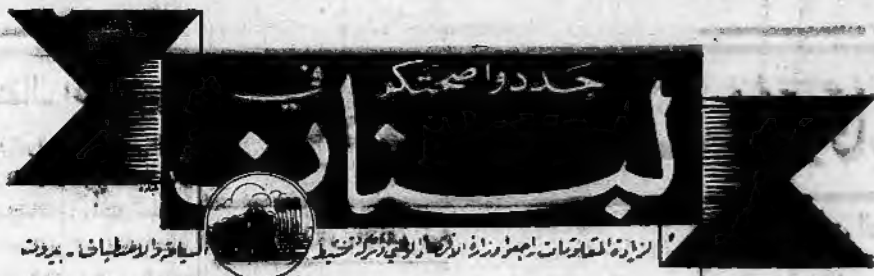 جددوا صحتكم في
لبنان
لزيادة المعلومات راجعوا وزارة الاقتصاد الوطني السياحة والاصطياف - بيروت